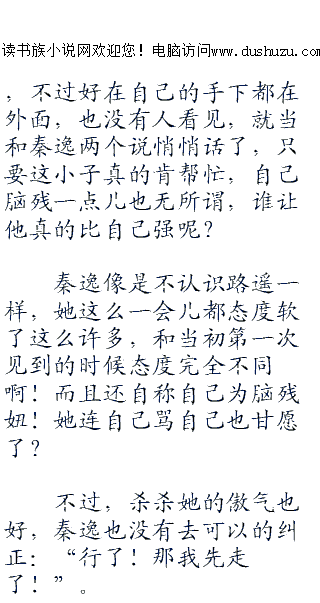 读书族小说网欢迎您！电脑访问www.dushuzu.com
，不过好在自己的手下都在
外面，也没有人看见，就当
和秦逸两个说悄悄话了，只
要这小子真的肯帮忙，自己
脑残一点儿也无所谓，谁让
他真的比自己强呢？
秦逸像是不认识路遥一
样，她这么一会儿都态度软
了这么许多，和当初第一次
见到的时候态度完全不同
啊！而且还自称自己为脑残
妞！她连自己骂自己也甘愿
了？
不过，杀杀她的傲气也
好，秦逸也没有去可以的纠
正：“行了！那我先走
了！”。